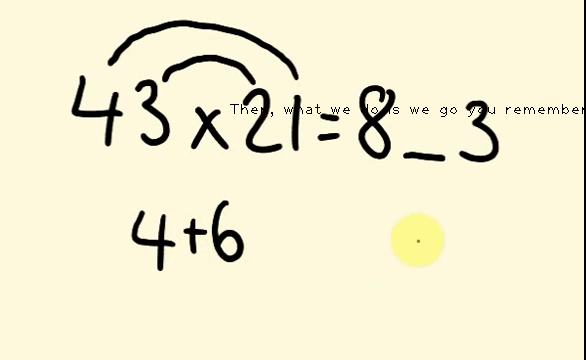 43 x 21 = 8 _ 3
Then, what we do is we go you remember
4+6